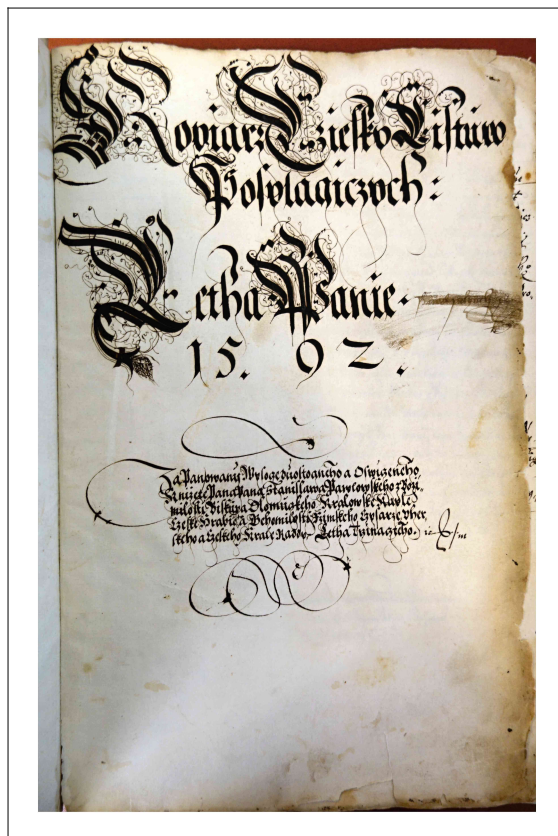 Kopiarz Cziesko Listuw
Posylagiczych:
Letha Panie.
15. 92.
Za Panowanj Wysoce Duostogneho a Oswigeneho
Knizete Pana Pana Stanislawa Pawlowskeho z Bozi
milosti Biskupa Olomuczkeho Kralowske Kaple
Czeske Hrabie a Geho milosti Rzimskeho Czysarze Vher
skeho a Czeskeho Krale Raddy. Letha